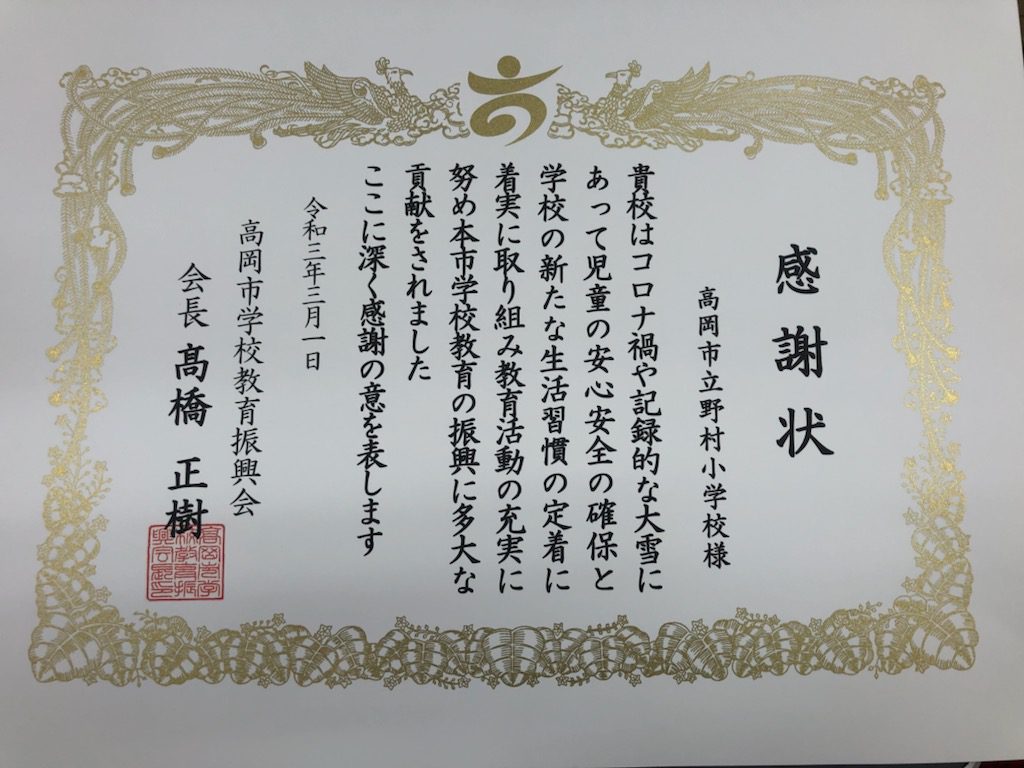 感謝状
高岡市立野村小学校様
貴校はコロナ禍や記録的な大雪に
あって児童の安心安全の確保と
学校の新たな生活習慣の定着に
着実に取り組み教育活動の充実に
努め本市学校教育の振興に多大な
貢献をされました
ここに深く感謝の意を表します
令和三年三月一日
高岡市学校教育振興会
会長 髙橋 正樹